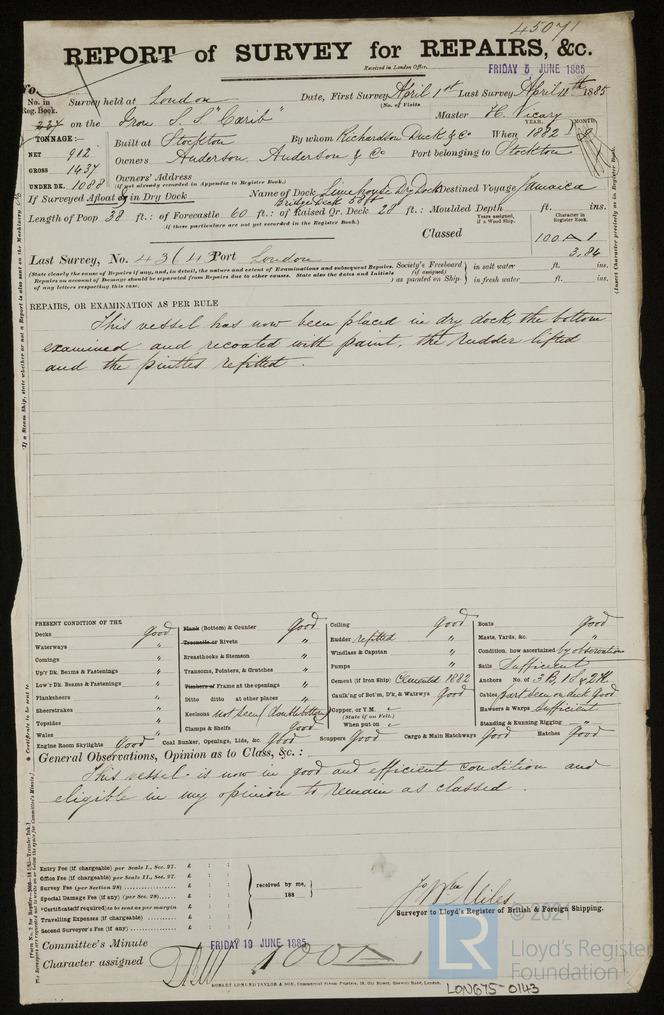 45071
REPORT of SURVEY for REPAIRS, &c.
Received in London Office.
FRIDAY 5 JUNE 1885
No.
No. in Reg. Book. Survey held at London Date, First Survey April 1st Last Survey April 18th 1885
(No. of Visits
on the Iron S.S "Carib" Master H. Vicary
TONNAGE:— YEAR. MONTH.
NET 912 Built at Stockton By whom Richardson Duck & Co When 1882
GROSS 1437 Owners Anderson, Anderson & Co Port belonging to Stockton
UNDER DK. 1088 Owners' Address
(if not already recorded in Appendix to Register Book.)
If Surveyed Afloat or in Dry Dock Name of Dock Limehouse Dry Dock Destined Voyage Jamaica
Bridge Deck 58 ft
Length of Poop 38 ft.: of Forecastle 60 ft.: of Raised Qr. Deck 28 ft.: Moulded Depth ft. ins.
(If these particulars are not yet recorded in the Register Book.)
Years assigned, if a Wood Ship. Character in Register Book.
Classed 100 A 1
3.84
Last Survey, No. 4364 Port London
(State clearly the cause of Repairs if any, and, in detail, the nature and extent of Examinations and subsequent Repairs.
Repairs on account of Damage should be separated from Repairs due to other causes. State also the dates and Initials
of any letters respecting this case.
Society's Freeboard (if assigned) as painted on Ship in salt water ft. ins.
in fresh water ft. ins.
REPAIRS, OR EXAMINATION AS PER RULE
This vessel has now been placed in dry dock, the bottom
examined and recoated with paint, the rudder lifted
and the pintles refitted.
PRESENT CONDITION OF THE
Decks good
Waterways "
Comings "
Up'r Dk. Beams & Fastenings "
Low'r Dk. Beams & Fastenings "
Planksheers "
Sheerstrakes "
Topsides "
Wales "
Engine Room Skylights Good
Plank (Bottom) & Counter Good
Treenails or Rivets "
Breasthooks & Stemson "
Transoms, Pointers, & Crutches "
Timbers of Frame at the openings "
Ditto ditto at other places "
Keelsons not seen (double bottom)
Clamps & Shelfs good
Coal Bunker, Openings, Lids, &c. Good
Ceiling Good
Rudder refitted "
Windlass & Capstan "
Pumps "
Cement (if Iron Ship) Cemented 1882
Caulk'ng of Bot'm, D'k, & Watrwys Good
Copper, or Y.M.
(State if on Felt.)
When put on
Scuppers Good Cargo & Main Hatchways Good
Boats Good
Masts, Yards, &c. "
Condition, how ascertained by observation
Sails Sufficient
Anchors No. of 3 B, 1 S & 2 K.
Cables, part seen on deck Good
Hawsers & Warps Sufficient
Standing & Running Rigging "
Hatches Good
General Observations, Opinion as to Class, &c.:
This vessel is now in good and efficient condition and
eligible in my opinion to remain as classed.
Entry Fee (if chargeable) per Scale I., Sec. 27. £ : :
Office Fee (if chargeable) per Scale II., Sec. 27. £ : :
Survey Fee (per Section 28) £ : :
Special Damage Fee (if any) (per Sec. 28) £ : :
*Certificate (if required) as be sent as per margin £ : :
Travelling Expenses (if chargeable) £ : :
Second Surveyor's Fee (if any) £ : :
received by me,
188
Surveyor to Lloyd's Register of British & Foreign Shipping.
Committee's Minute FRIDAY 19 JUNE 1885
Character assigned 100 A 1
ROBERT EDMUND TAYLOR & SON, Commercial Steam Printers, 19, Old Street, Goswell Road, London.
LON675-0143
© 2021
LR
Lloyd's Register
Foundation